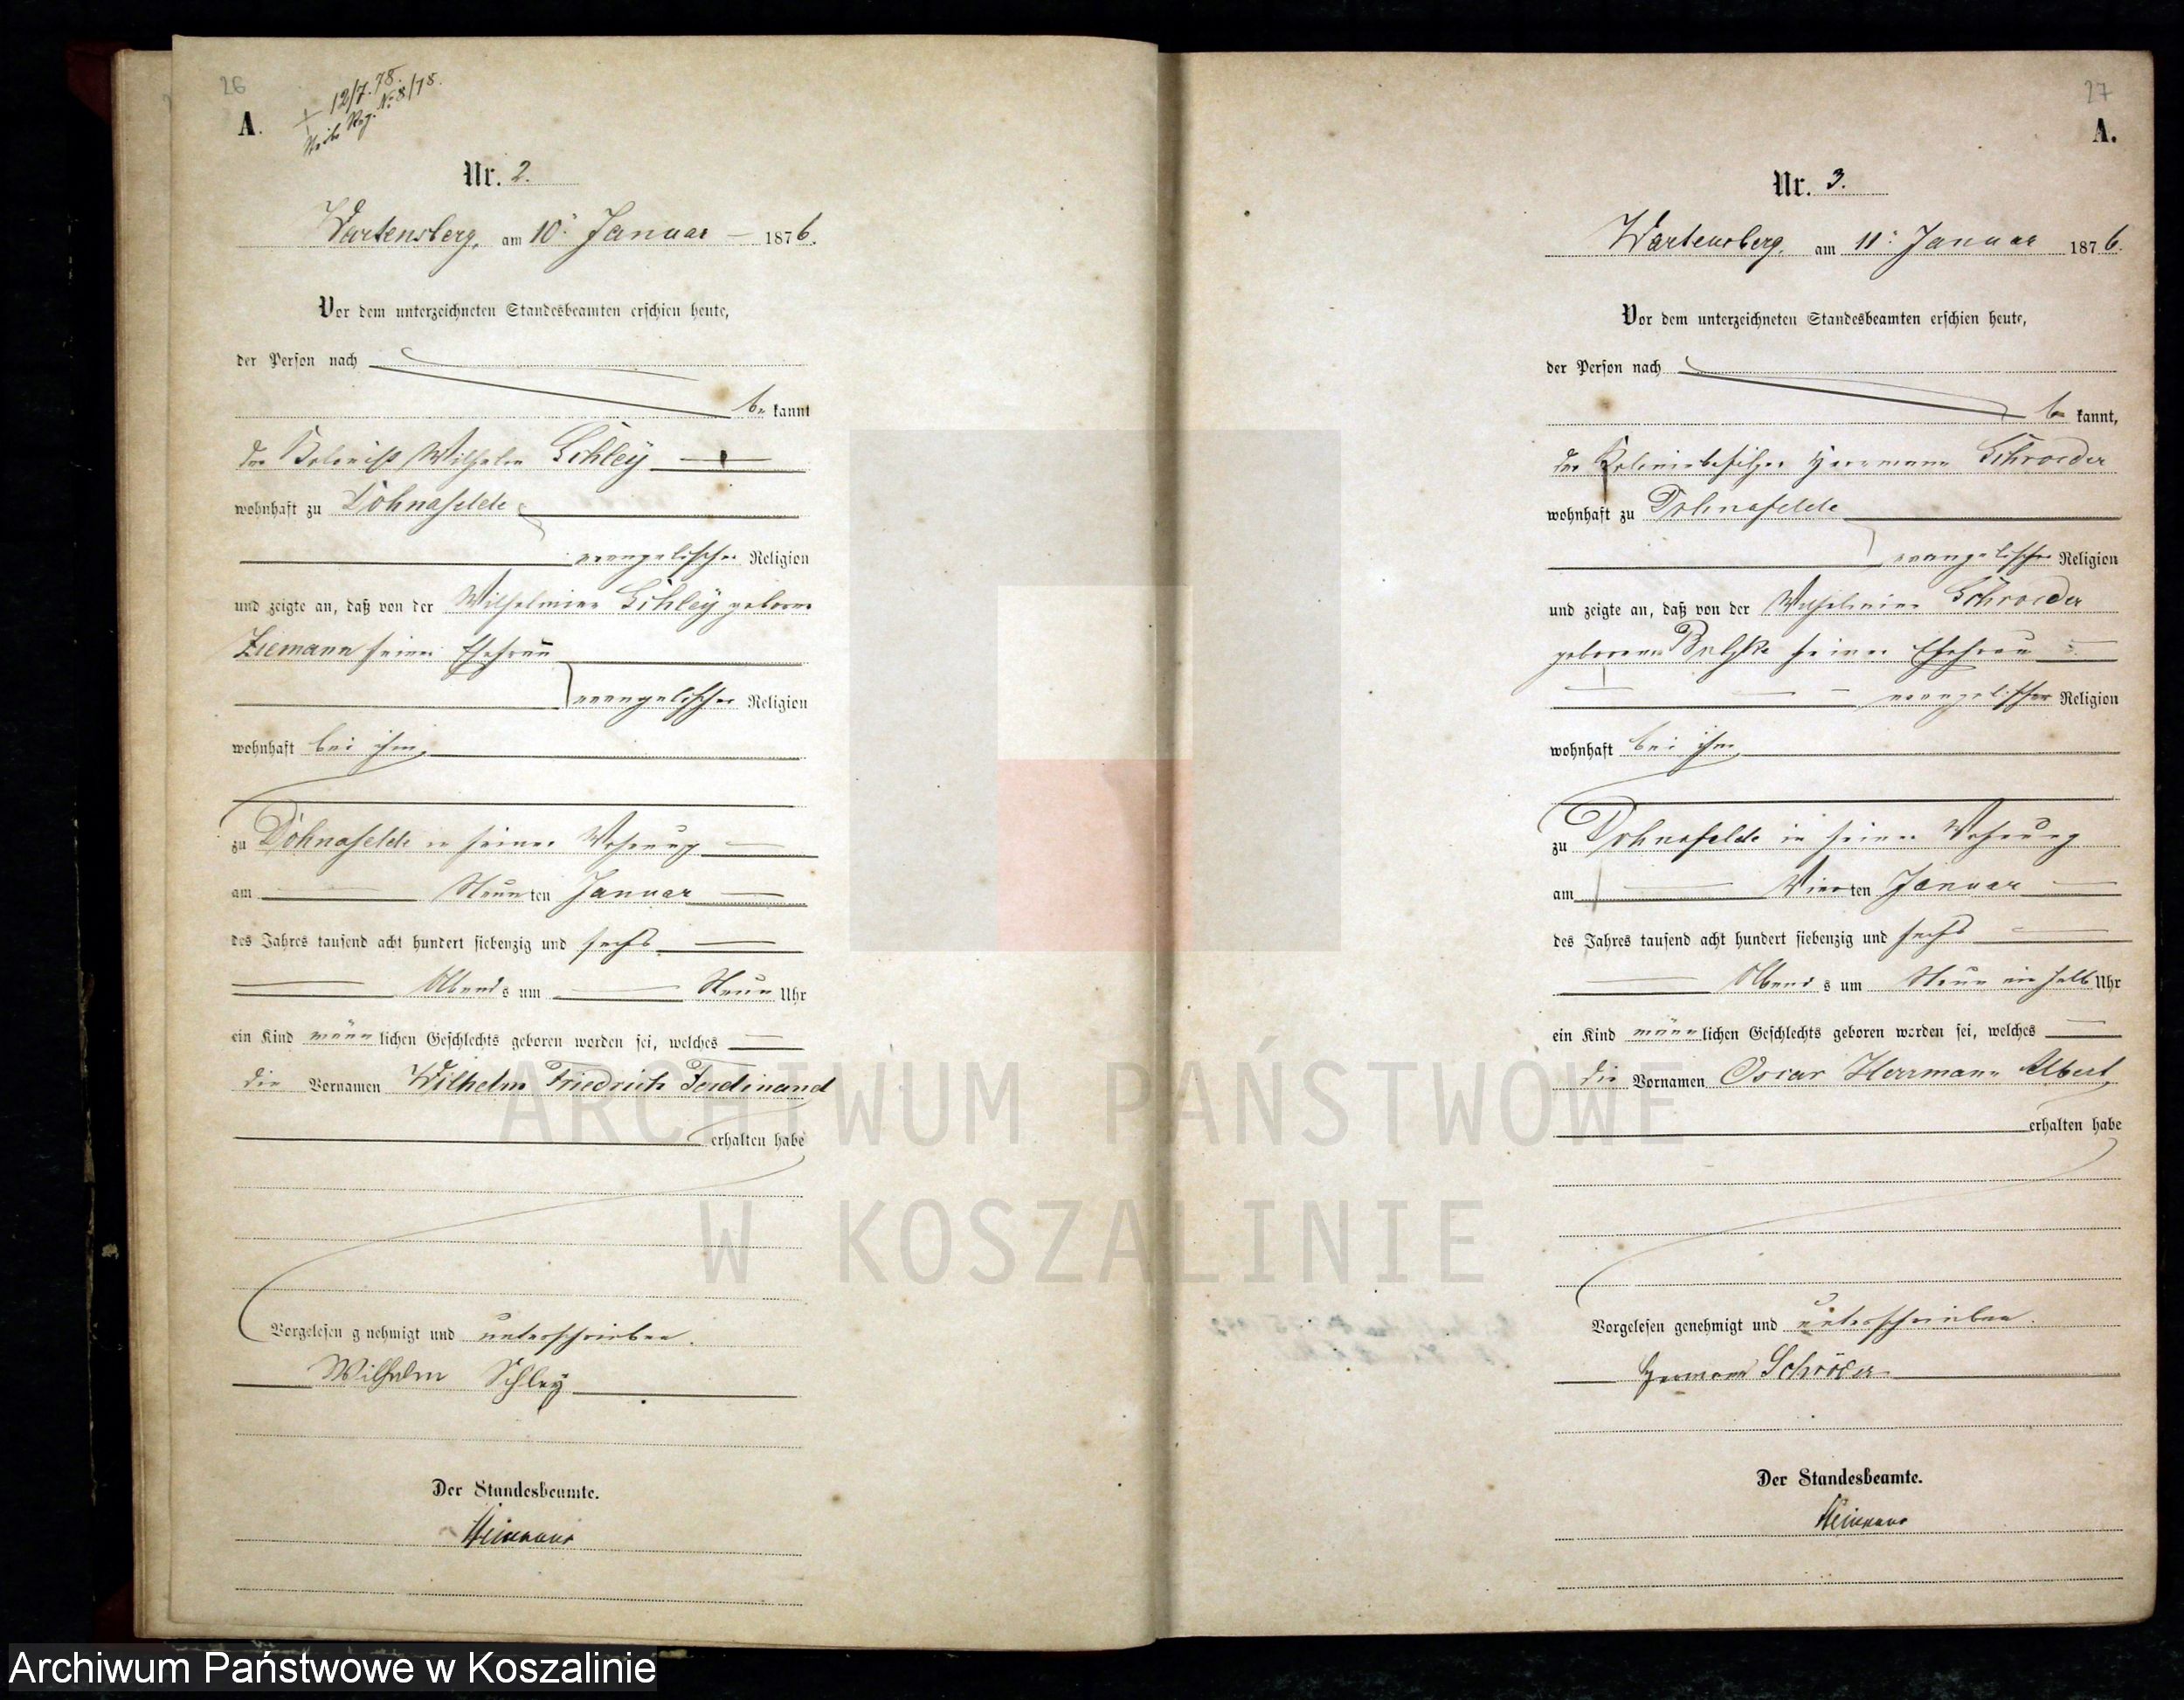 26
A.
+ 12/7. 78.
Reg. № 8/78.
Nr. 2.
Wartensberg, am 10. Januar 1876.
Vor dem unterzeichneten Standesbeamten erschien heute,
der Person nach
be kannt
der Kolonist Wilhelm Schley
wohnhaft zu Dohnafelde
evangelischer Religion
und zeigte an, daß von der Wilhelmine Schley geborene
Ziemann seiner Ehefrau
evangelischer Religion
wohnhaft bei ihm,
zu Dohnafelde in seiner Wohnung
am Neun ten Januar
des Jahres tausend acht hundert siebenzig und sechs
Abend s um Neun Uhr
ein Kind männ lichen Geschlechts geboren worden sei, welches
die Vornamen Wilhelm Friedrich Ferdinand
erhalten habe
Vorgelesen g nehmigt und unterschrieben.
Wilhelm Schley
Der Standesbeamte.
27
A.
Nr. 3.
Wartensberg, am 11. Januar 1876.
Vor dem unterzeichneten Standesbeamten erschien heute,
der Person nach
be kannt,
der Koloniebesitzer Herrmann Schroeder
wohnhaft zu Dohnafelde
evangelischer Religion
und zeigte an, daß von der Wilhelmine Schroeder
geborenen seiner Ehefrau
evangelischer Religion
wohnhaft bei ihm,
zu Dohnafelde in seiner Wohnung
am Vier ten Januar
des Jahres tausend acht hundert siebenzig und sechs
Abend s um Neun ein halb Uhr
ein Kind männ lichen Geschlechts geboren worden sei, welches
die Vornamen Oscar Herrmann Albert
erhalten habe
Vorgelesen genehmigt und unterschrieben.
Hermann Schröder
Der Standesbeamte.
ARCHIWUM PAŃSTWOWE
W KOSZALINIE
Archiwum Państwowe w Koszalinie